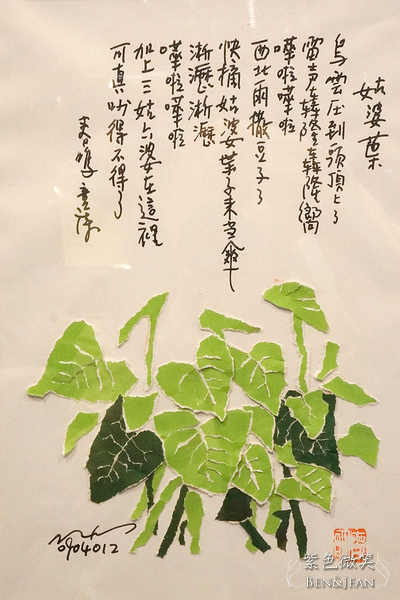 姑婆葉
烏雲压到頭頂上了
雷声轟隆轟隆響
嘩啦嘩啦
西北雨撒豆子了
快摘姑婆葉子来当傘
淅瀝淅瀝
嘩啦嘩啦
加上三姑六婆在這裡
可真吵得不得了
0904012
紫色微笑
BEN&JEAN